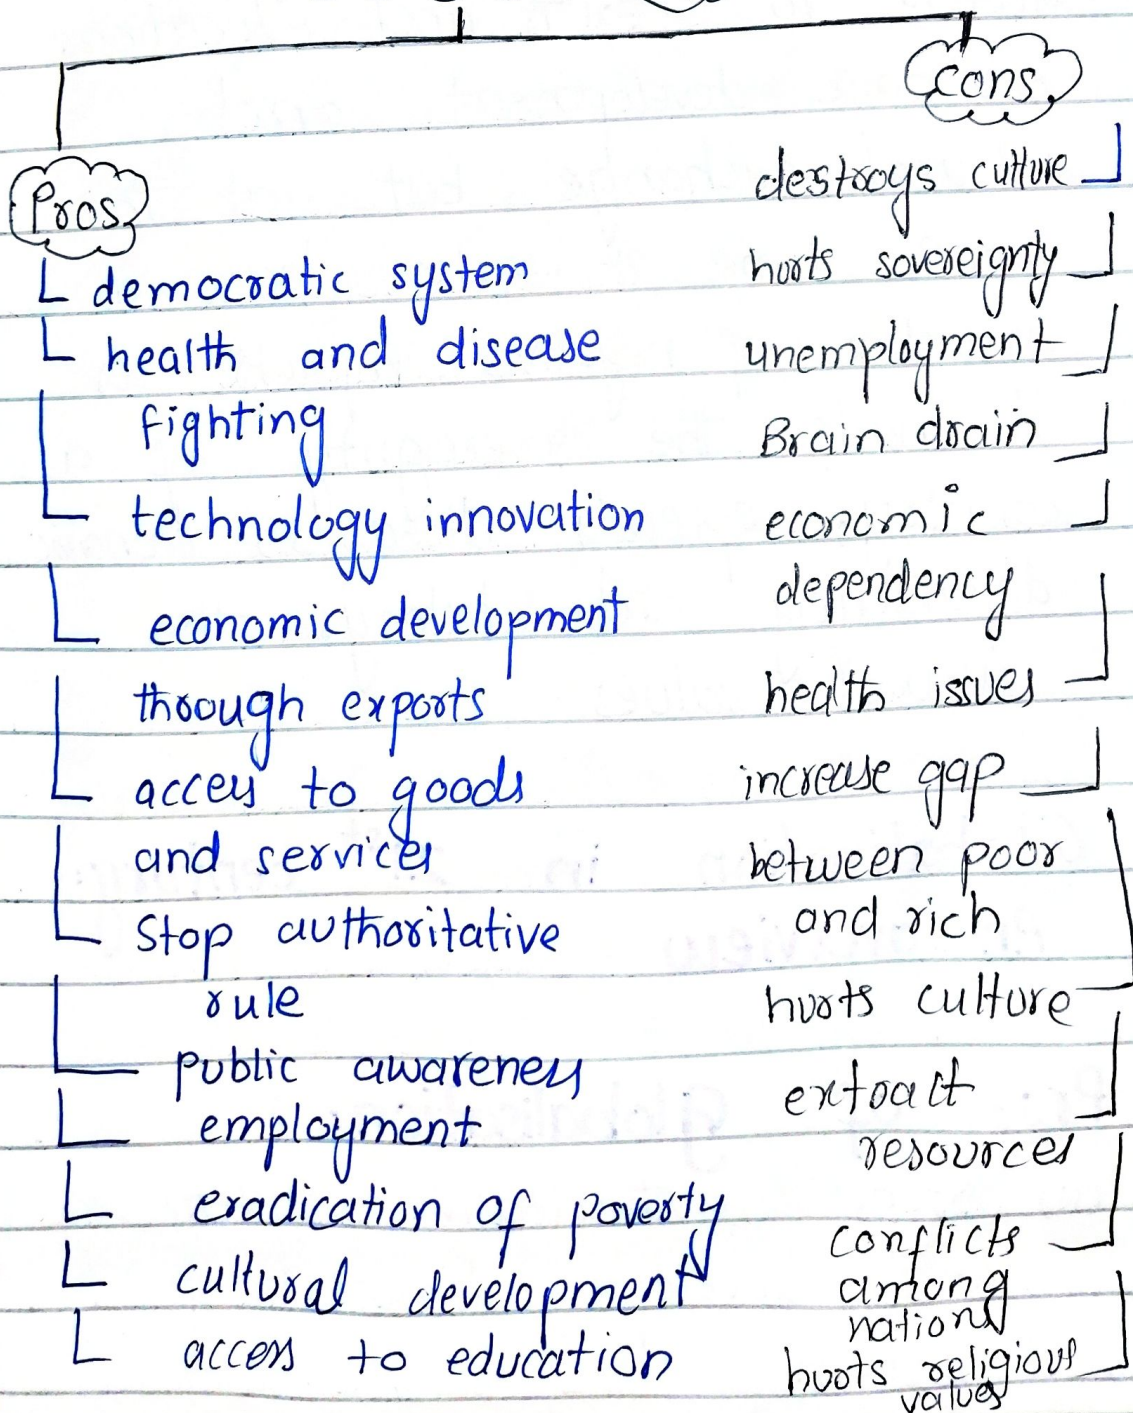 Cons
Pros
democratic system
health and disease
fighting
technology innovation
economic development
through exports
access to goods
and services
Stop authoritative
rule
public awareness
employment
eradication of poverty
cultural development
access to education
destroys culture
hurts sovereignty
unemployment
Brain drain
economic
dependency
health issues
increase gap
between poor
and rich
hurts culture
extract
resources
conflicts
among
nations
hurts religious
values